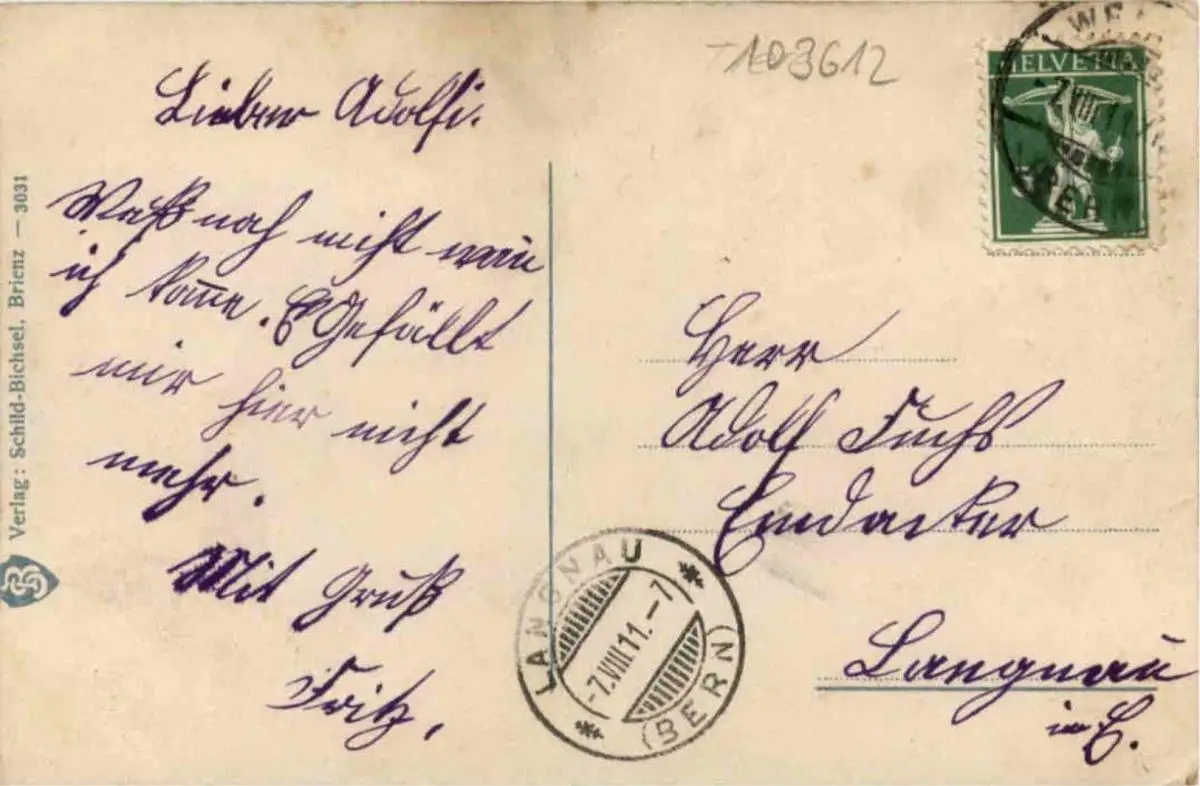 T103612
Lieber Adolfi.
Weiß noch nicht wan̄
ich kom̄e. Es Gefällt
mir hier nicht
mehr.
Mit Gruß
Fritz,
Verlag: Schild-Bichsel, Brienz — 3031
HELVETIA
7.VIII.11
BERN
LANGNAU
-7.VIII.11.-7
(BERN)
Herr
Adolf Fuchs
Langnau
im E.